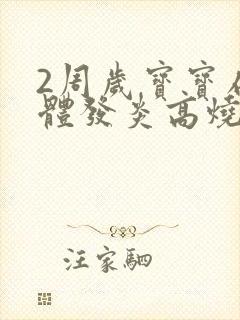 2周歲寶寶
體發炎高燒
汪家駟